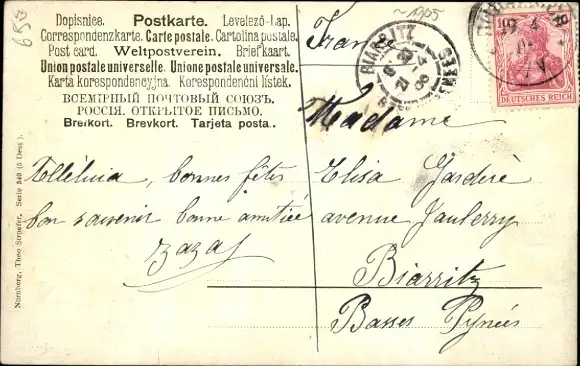 650
~ 1905
Dopisnice. Postkarte. Levelező-Lap.
Correspondenzkarte. Carte postale. Cartolina postale.
Post card. Weltpostverein. Briefkaart.
Union postale universelle. Unione postale universale.
Karta korespondencyjna. Korespondenční lístek.
ВСЕМІРНЫЙ ПОЧТОВЫЙ СОЮЗЪ.
РОССІЯ. ОТКРЫТОЕ ПИСЬМО.
Brefkort. Brevkort. Tarjeta posta..
BIARRITZ
10
DEUTSCHES REICH
France
Madame
Elisa Garderè
avenue Jaulerry
Biarritz
Basses Pyneés
Alléluia, bonnes fêtes
bon souvenir bonne amitiée
zaza
Nürnberg, Theo Stroefer, Serie 349 (5 Dess.)